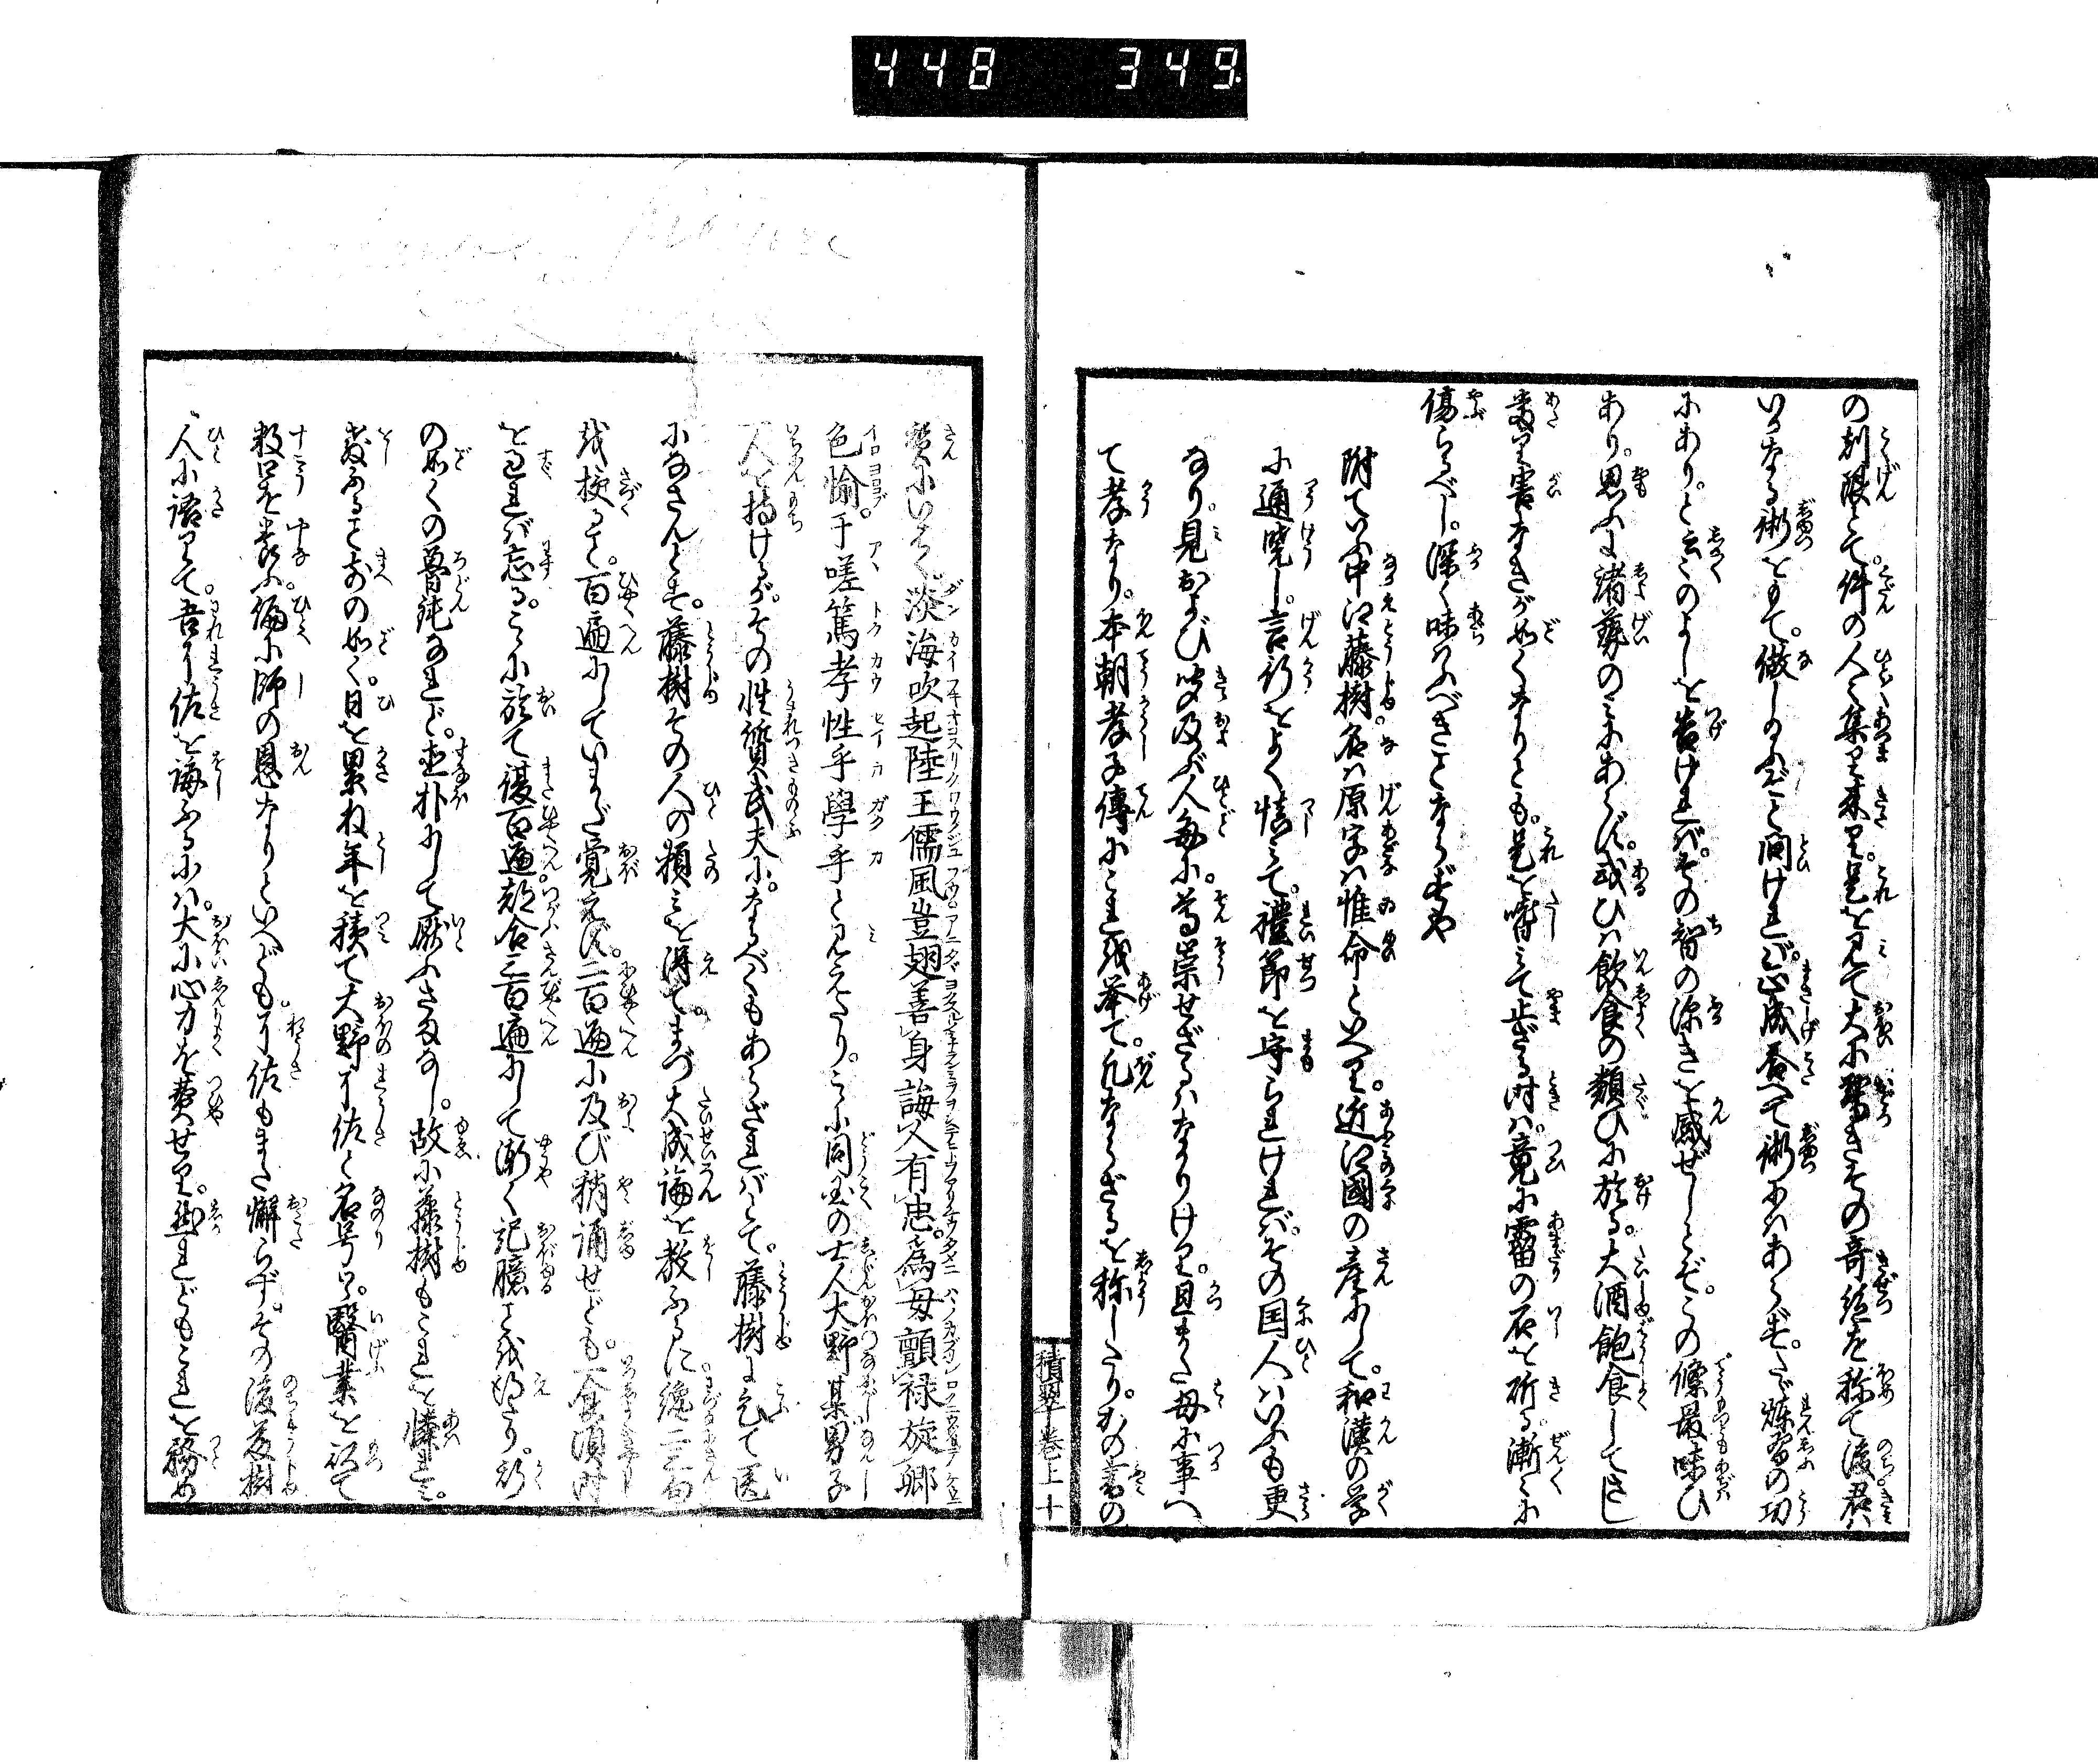 448 349
の刻限とて。件の人々集り来り。是を見て大に驚きその奇絶を称て後君ハ
いかなる術をもて。做しのふぞと問けれバ。正成答へて術にハあらず。たゞ煉習の功
にあり。と云云のよしを告けれバ。その智の深きを感ぜしとぞ。この條最味ひ
あり。思ふに諸藝のミにあらず。或ひハ飲食の類ひに於る。大酒飽食してさし
害なきが如くなりとも。是を嗜ミて止ざる時ハ。竟に霤の石を斫る。漸々に
傷らるべし。深く味ハふべきことならずや
附ていふ中江藤樹。名ハ原字ハ惟命といへり。近江國の産にして。和漢の学
に通暁し。言行をよく慎ミて。禮節を守られけれバ。その国人ハいふも更
なり。見および聞及ぶ人毎に。尊崇せざるハなかりけり。且また母に事へ
て孝なり。本朝孝子傳にこれを挙て。凡ならざるを称したり。その書の
積翠 巻上 十
賛にいはく。淡海吹起陸王儒風豈翅善身誨人有忠。為母顫禄旋郷
色愉于嗟篤孝性乎學乎と見えたり。こゝに同国の士人大野某男子
一人を持けるが。その性質武夫に。なるべくもあらざれバとて。藤樹に乞て医
になさんとす。藤樹その人の頼ミを得て。まづ大成論を教ふるに。纔二三句
を授ること。百遍にしていまだ覚えず。二百遍に及び稍誦せども。一食須時
を過れバ忘る。こゝに於て復百遍。都合三百遍にして漸く記臆ことを得たり。斯
の如くの魯鈍なれど。直朴にして厭ふさまなし。故に藤樹もこれを憐れミ。
教ふること前の如く。日を累ね年を積て大野了佐と名号り。醫業を行て
数口を養ふ。偏に師の恩なりといへども了佐もまた懈らず。その後藤樹
人に語りて。吾了佐を誨ふるにハ。大に心力を費せり。然れどもこれを務め